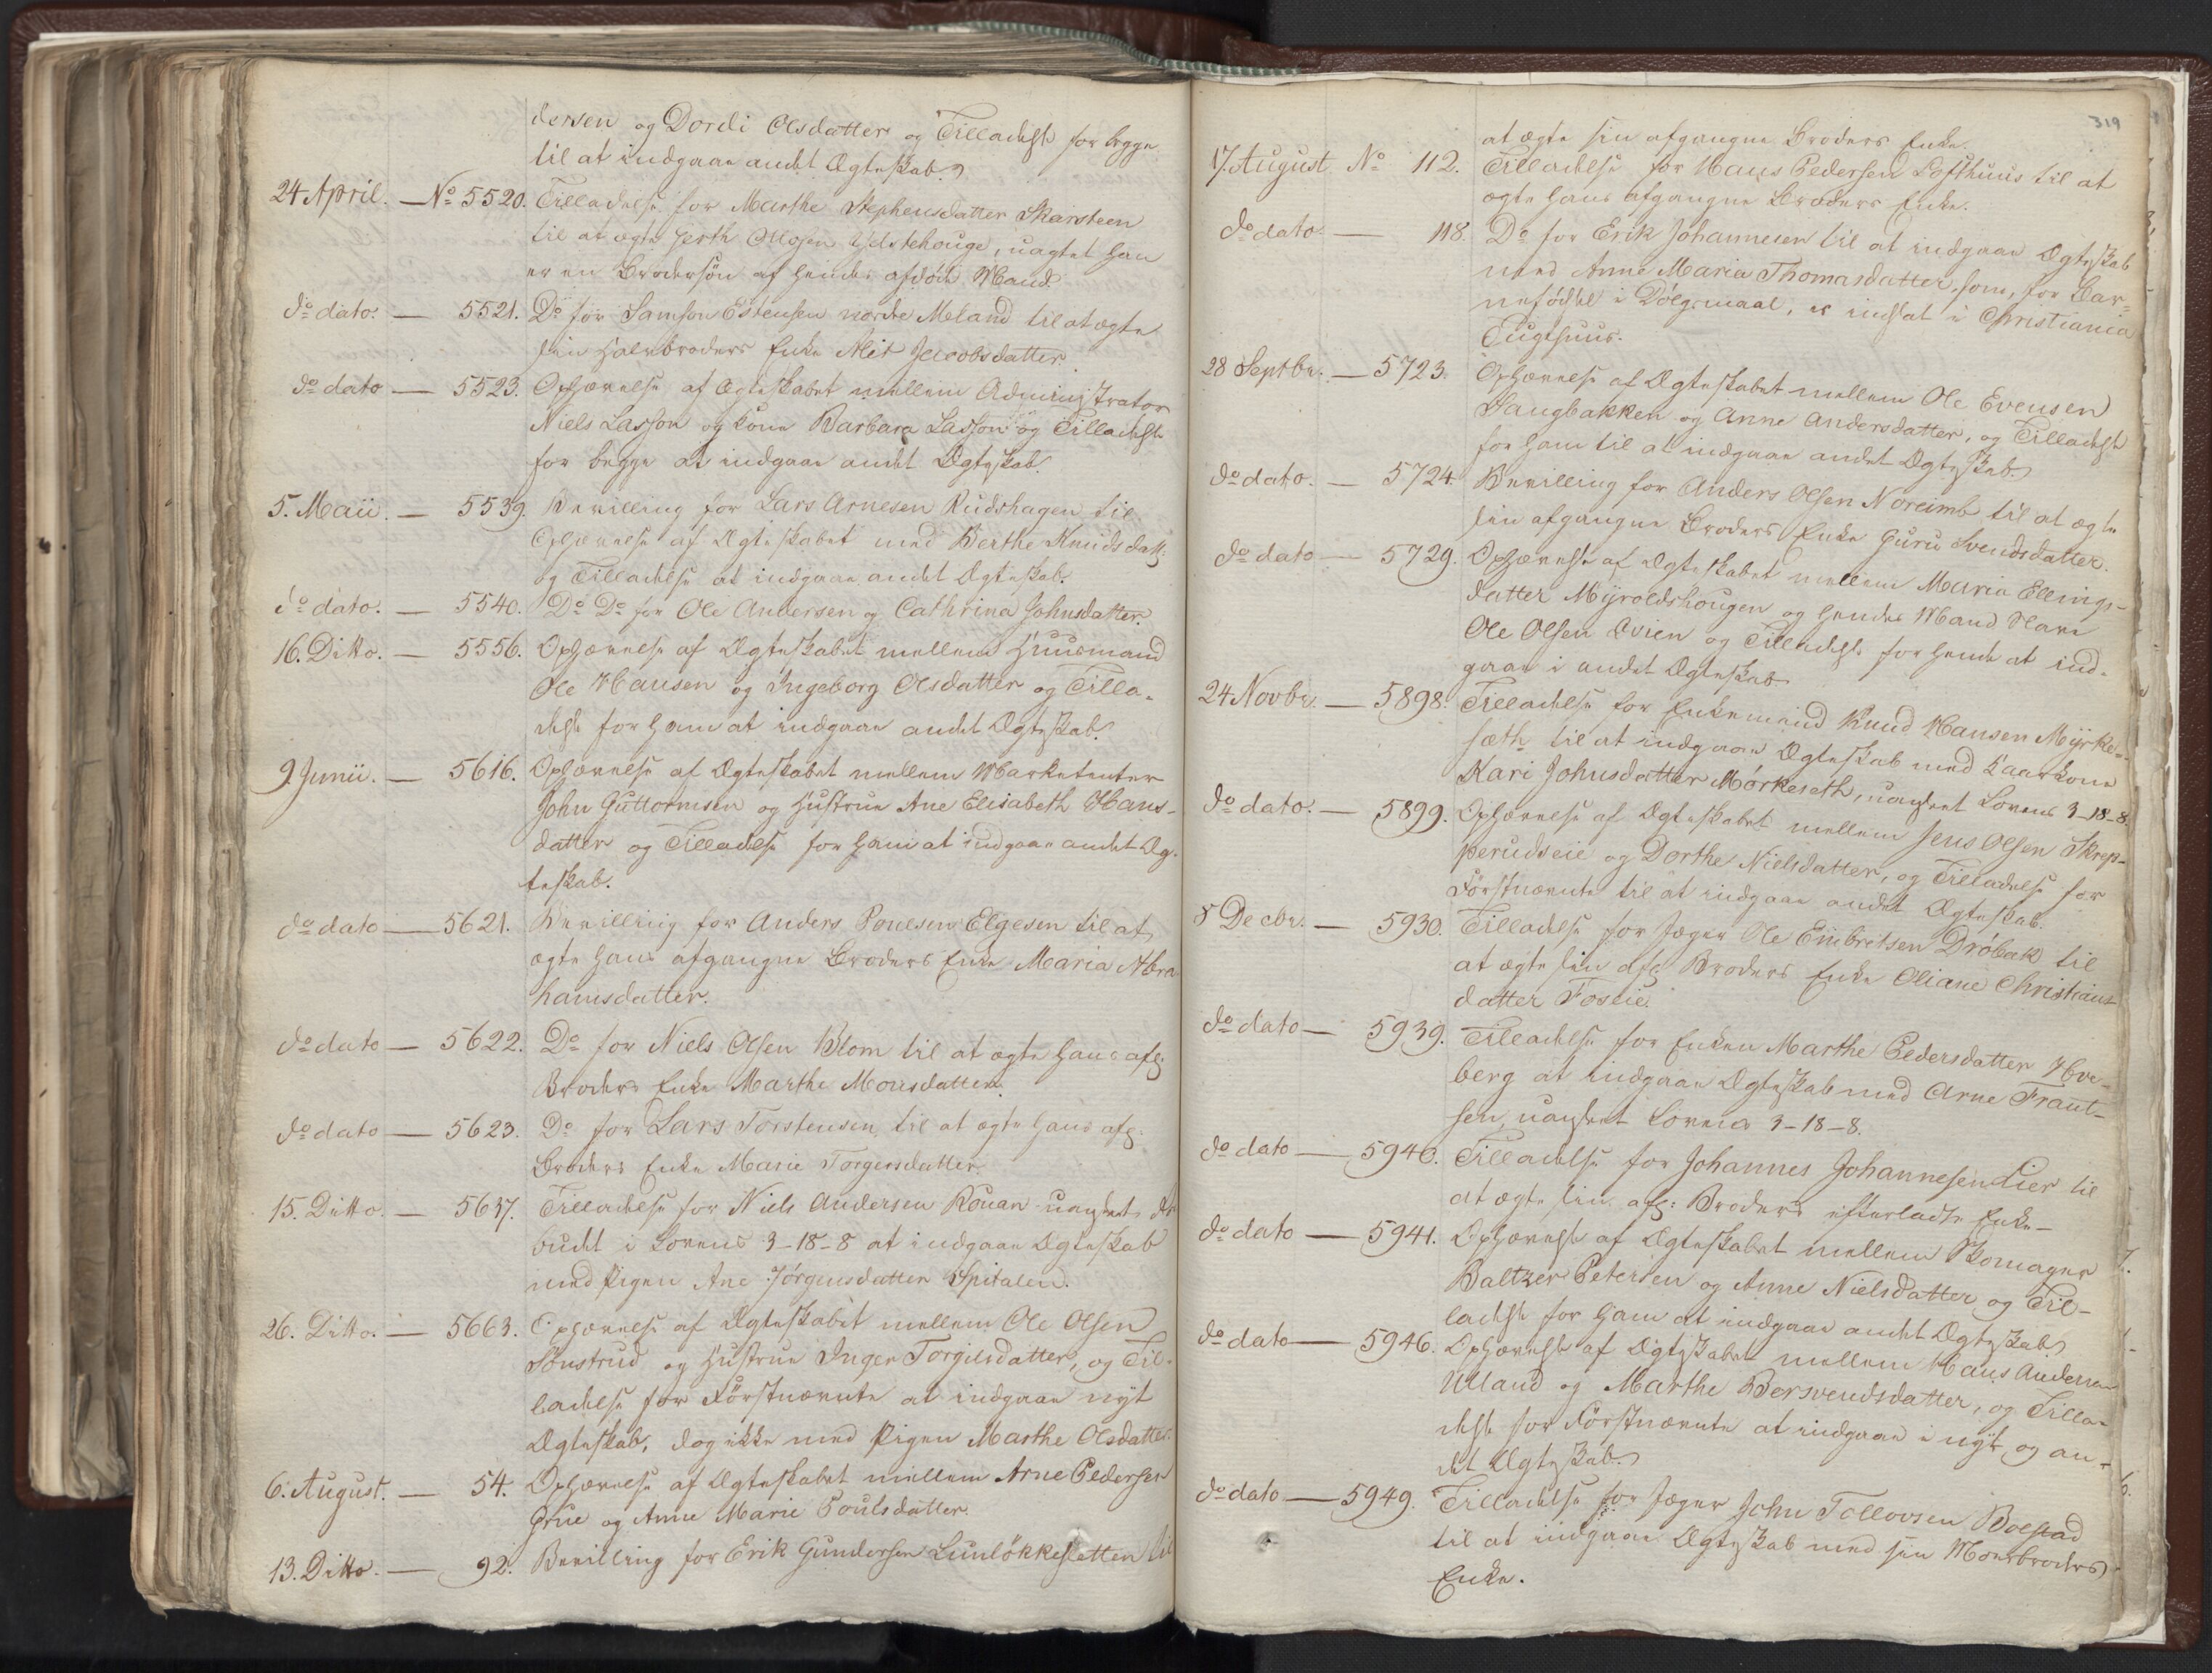 dersen og Dordi Olsdatter og Tilladelse for begge
til at indgaae andet Ægteskab.
24 April. — No 5520. Tilladelse for Marthe Stephensdatter Skarsteen
til at ægte Jerth Ollosen Ydstehouge, uagtet han
er en Brodersøn af hendes afdøde Mand.
do dato. — 5521. Do for Samson Estensen nordre Meland til at ægte
sin Halvbroders Enke Alis Jacobsdatter.
do dato — 5523. Ophævelse af Ægteskabet mellem Administrator
Niels Lasson og Kone Barbara Lasson og Tilladelse
for begge at indgaae andet Ægteskab.
5. Maii. — 5539. Bevilling for Lars Arnesen Rudshagen til
Ophævelse af Ægteskabet med Berthe Knudsdatt:
og Tilladelse at indgaae andet Ægteskab.
do dato. — 5540. Do Do for Ole Andersen og Cathrina Johnsdatter.
16. Ditto. — 5556. Ophævelse af Ægteskabet mellem Huusmand
Ole Hansen og Ingeborg Olsdatter og Tilla-
delse for ham at indgaae andet Ægteskab.
9. Junii. — 5616. Ophævelse af Ægteskabet mellem Marketenter
John Guttormsen og Hustrue Ane Elisabeth Hans-
datter og Tilladelse for ham at indgaae andet Æg-
teskab.
do dato — 5621. Bevilling for Anders Poulsen Elgesem til at
ægte hans afgangne Broders Enke Maria Abra-
hamsdatter.
do dato — 5622. Do for Niels Olsen Blom til at ægte hans afg:
Broders Enke Marthe Monsdatter.
do dato — 5623. Do for Lars Torstensen til at ægte hans afg:
Broders Enke Marie Torgersdatter.
15. Ditto. — 5637. Tilladelse for Niels Andersen Rouan uagtet
budet i Lovens 3–18–8 at indgaae Ægteskab
med Pigen Ane Jörgensdatter Spitalen.
26. Ditto. — 5663. Ophævelse af Ægteskabet mellem Ole Olsen
Sönstrud og Hustrue Inger Torgilsdatter, og Til-
ladelse for Förstnævnte at indgaae nyt
Ægteskab, dog ikke med Pigen Marthe Olsdatter.
6. August. — 54. Ophævelse af Ægteskabet mellem Arne Pedersen
Grue og Anne Marie Poulsdatter.
13. Ditto. — 92. Bevilling for Erik Gundersen Lunlökkesletten til
319
at ægte sin afgangne Broders Enke.
17. August No 112. Tilladelse for Hans Pedersen Lofthuus til at
ægte hans afgangne Broders Enke.
do dato. — 118. Do for Erik Johannesen til at indgaae Ægteskab
med Anne Maria Thomasdatter, som, for Bar-
nefödsel i Dölgsmaal, er indsat i Christiania
Tugthuus.
28 Septbr. — 5723. Ophævelse af Ægteskabet mellem Ole Evensen
Saugbakken og Anne Andersdatter, og Tilladelse
for ham til at indgaae andet Ægteskab.
do dato. — 5724. Bevilling for Anders Olsen Noreimb til at ægte
sin afgangne Broders Enke Guru Svendsdatter.
do dato — 5729. Ophævelse af Ægteskabet mellem Maria Ellings-
datter Myroldshougen og hendes Mand Slave
Ole Olsen Evien og Tilladelse for hende at ind-
gaae i andet Ægteskab
24 Novbr. — 5898. Tilladelse for Enkemand Knud Hansen Myrke-
sæth til at indgaae Ægteskab med Kaarkone
Kari Johnsdatter Mörkeseth, uagtet Lovens 3–18–8.
do dato. — 5899. Ophævelse af Ægteskabet mellem Jens Olsen Skrep-
perudseie og Dorthe Nielsdatter, og Tilladelse for
Förstnævnte til at indgaae andet Ægteskab.
8 Decbr. — 5930. Tilladelse for Jæger Ole Embritsen Dröbak til
at ægte sin afg: Broders Enke Oliane Christians-
datter Foseie.
do dato — 5939. Tilladelse for Enken Marthe Pedersdatter Hve-
berg at indgaae Ægteskab med Arne Frant-
sen, uagtet Lovens 3–18–8.
do dato — 5940. Tilladelse for Johannes Johannesen Lier til
at ægte sin afg: Broders efterladte Enke —
do dato — 5941. Ophævelse af Ægteskabet mellem Skomager
Baltzer Petersen og Anne Nielsdatter og Til-
ladelse for ham at indgaae andet Ægteskab
do dato — 5946. Ophævelse af Ægteskabet mellem Hans Andersen
Ulland og Marthe Bersvendsdatter, og Tilla-
delse for Förstnævnte at indgaae i nyt og an-
det Ægteskab.
do dato — 5949. Tilladelse for Jæger John Tollovsen Bolstad
til at indgaae Ægteskab med sin Morbroders
Enke.